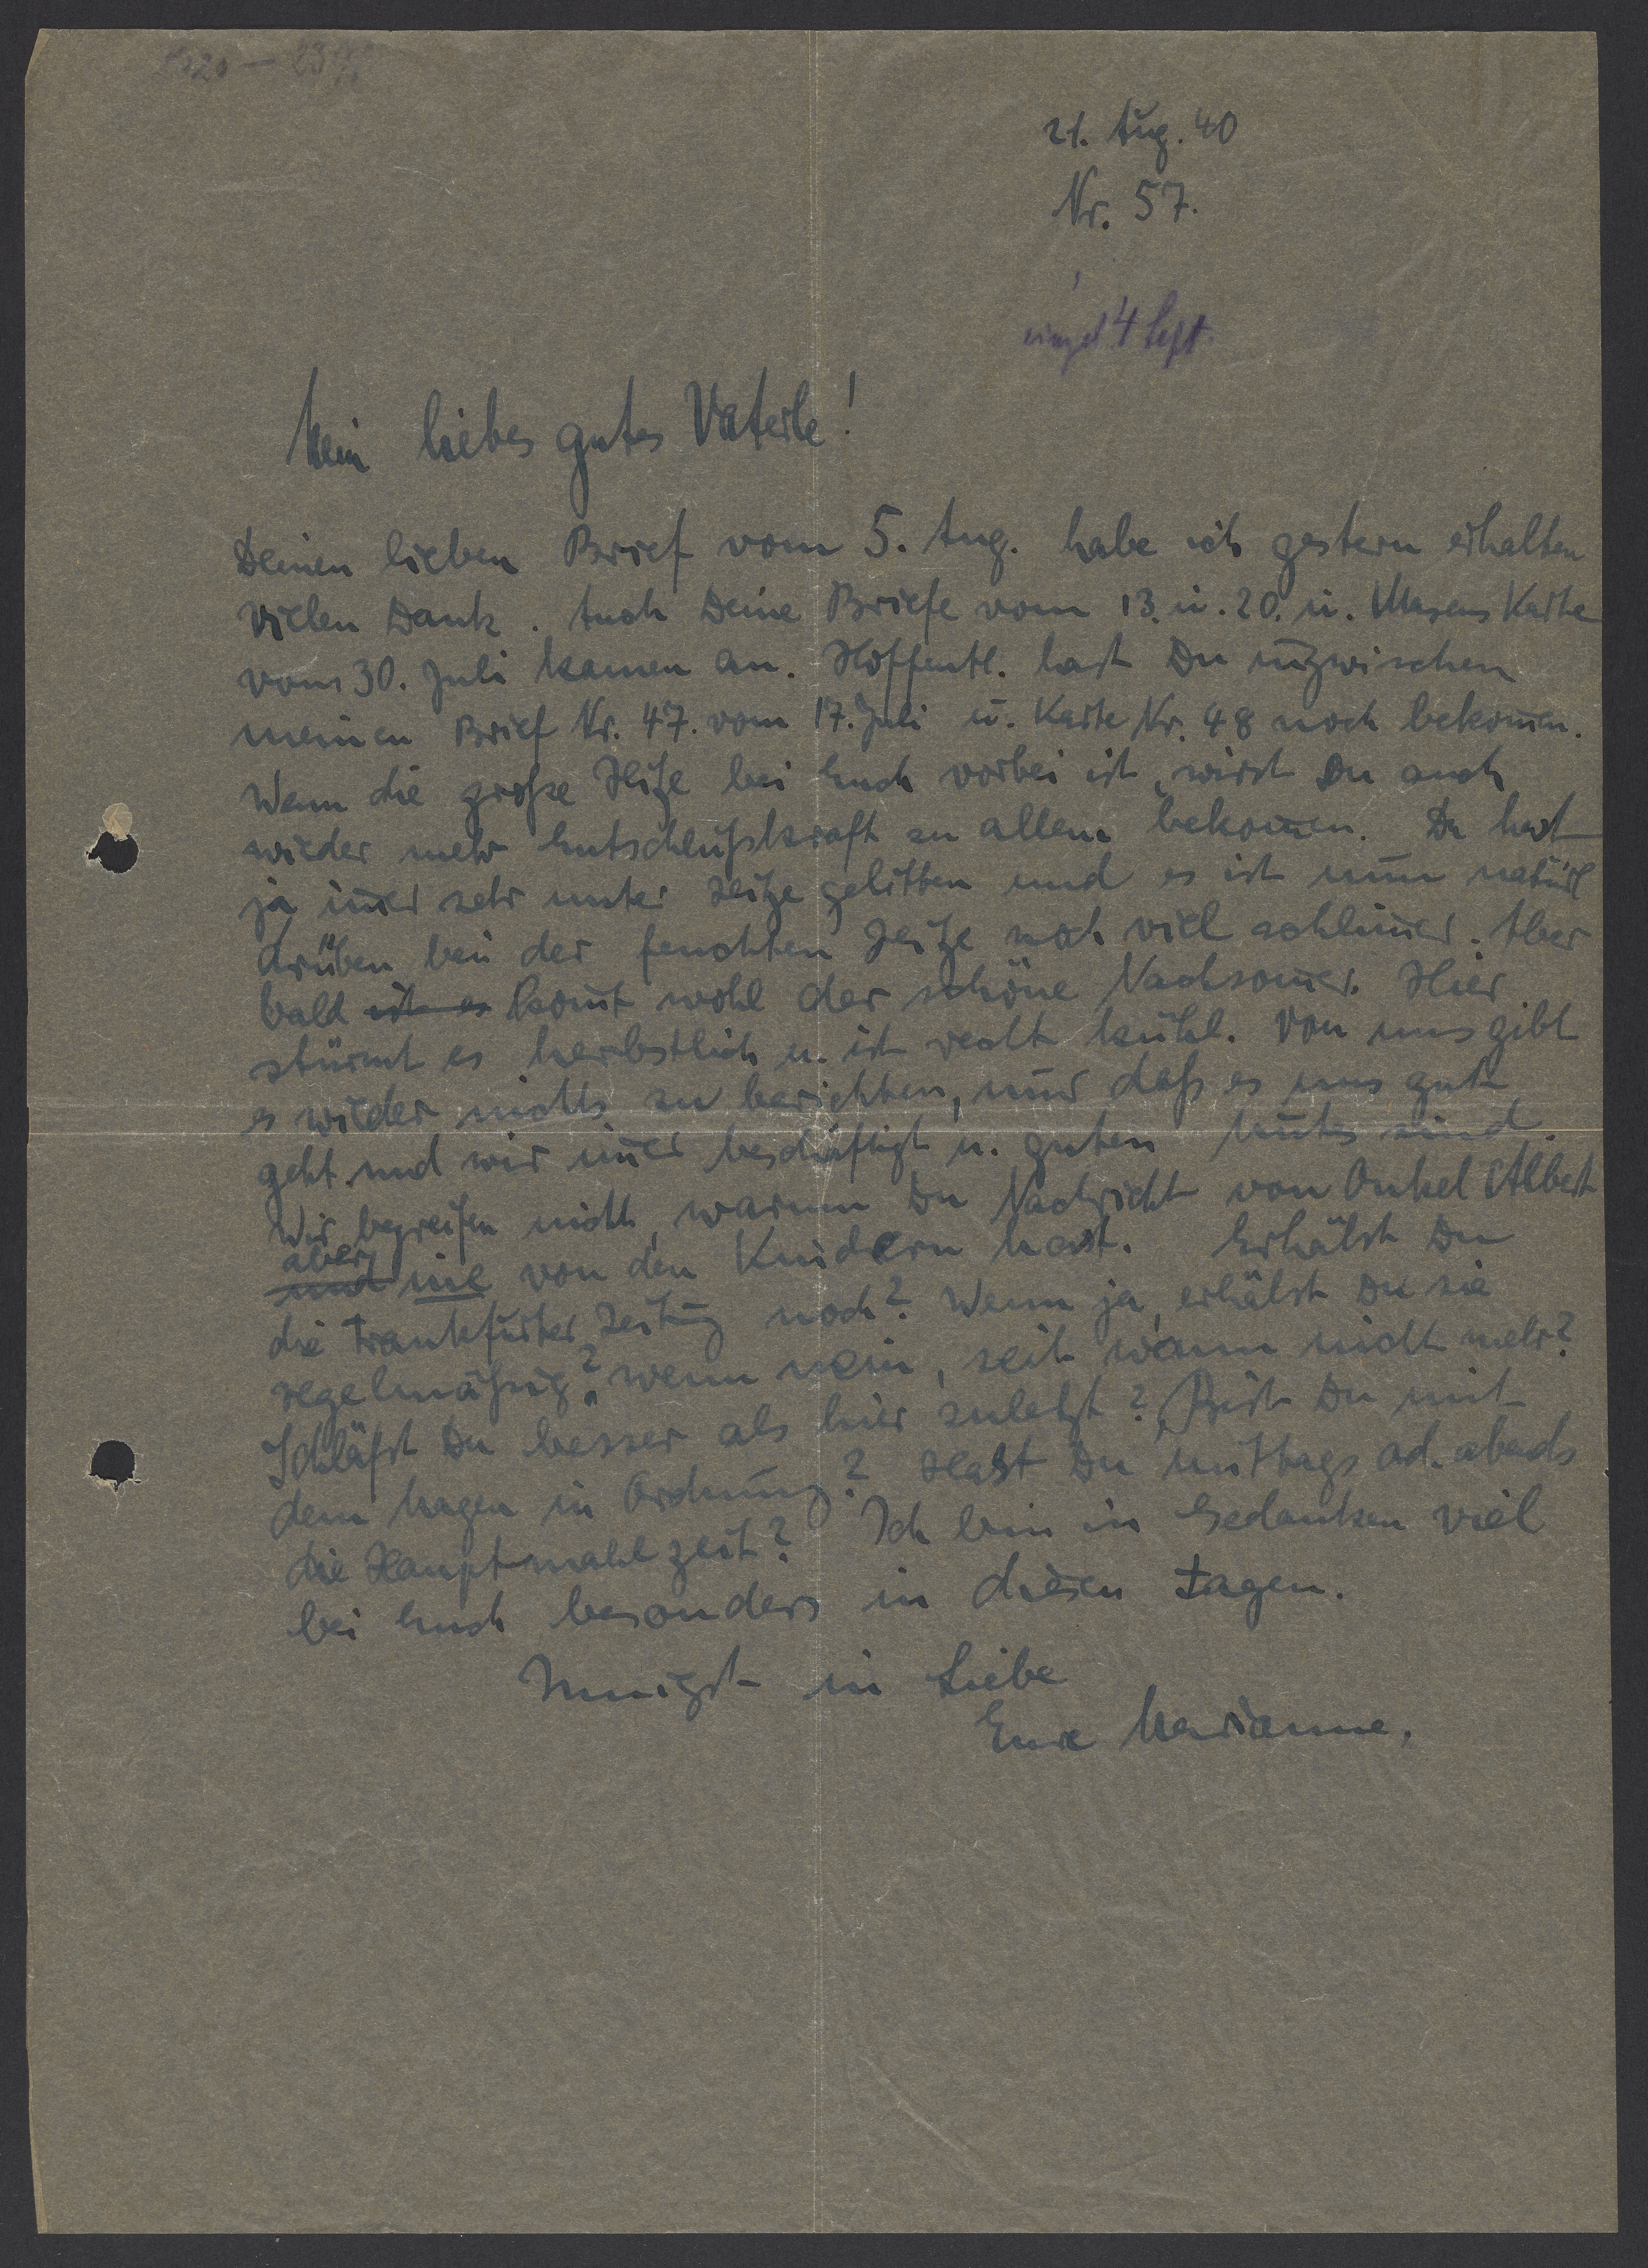 21. Aug. 40
Nr. 57.
eingel 4 Sept.
Mein liebes gutes Vaterle!
Deinen lieben Brief vom 5. Aug. habe ich gestern erhalten
vielen Dank. Auch Deine Briefe vom 13. u. 20. u. Masens Karte
vom 30. Juli kamen an. Hoffentl. hast Du inzwischen
meinen Brief Nr. 47. vom 17. Juli u. Karte Nr. 48 noch bekom̅en.
Wenn die große Hitze bei Euch vorbei ist, wirst Du auch
wieder mehr Entschlußkraft zu allem bekom̅en. Du hast
ja im̅er sehr unter Hitze gelitten und es ist nun natürl
drüben bei der feuchten Hitze noch viel schlim̅er. Aber
bald ist es kom̅t wohl der schöne Nachsom̅er. Hier
stürmt es herbstlich u. ist recht kühl. Von uns gibt
es wieder nichts zu berichten, nur daß es uns gut
geht und wir im̅er beschäftigt u. guten Mutes sind.
Wir begreifen nicht, warum Du Nachricht von Onkel Albert
aber
und nie von den Kindern hast. Erhälst Du
die Frankfurter Zeitung noch? Wenn ja, erhälst Du sie
regelmäßig? wenn nein, seit wann nicht mehr?
Schläfst Du besser als hier zuletzt? Bist Du mit
dem Magen in Ordnung? Hast Du mittags od. abends
die Hauptmahlzeit? Ich bin in Gedanken viel
bei Euch besonders in diesen Tagen.
Innigst in Liebe
Eure Marianne.